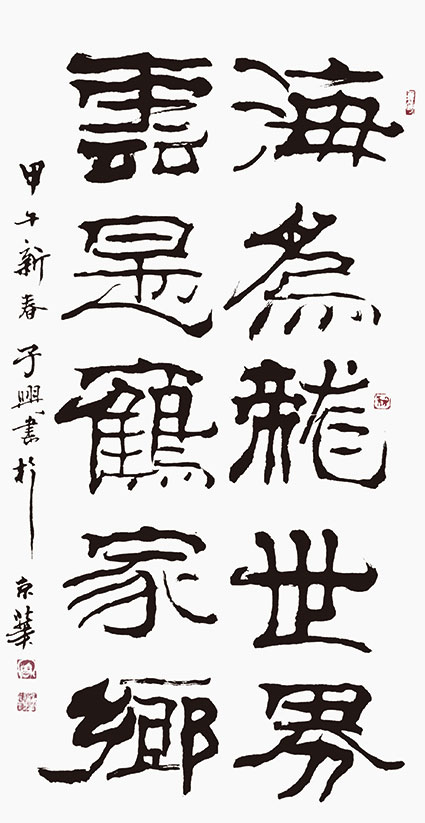 海為龍世界
雲是鶴家鄉
甲午新春子興書於京華